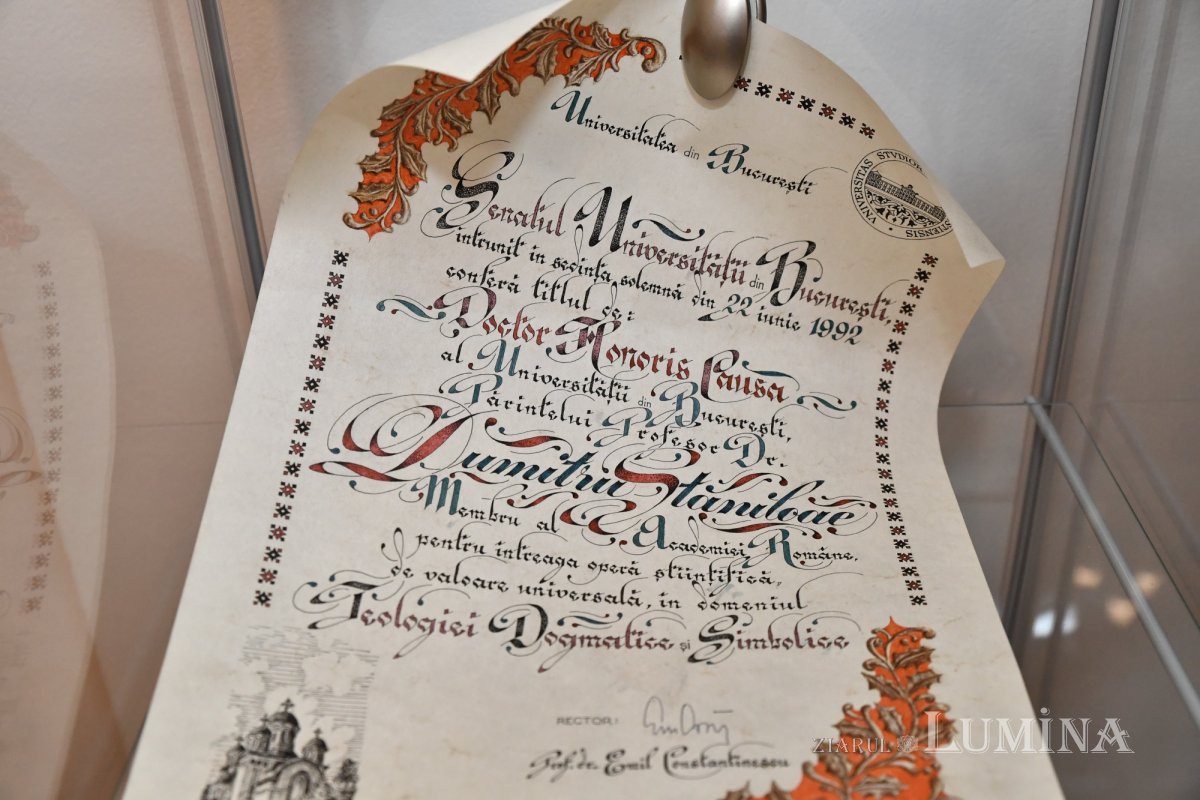 Universitatea din București
UNIVERSITAS STVDIOR
ESTIENSIS
Senatul Universității din București,
întrunit în ședința solemnă din 22 iunie 1992
conferă titlul de:
Doctor Honoris Causa
al Universității din București,
Părintelui Profesor Dr.
Dumitru Stăniloae
Membru al Academiei Române,
pentru întreaga operă științifică,
de valoare universală, în domeniul
Teologiei Dogmatice și Simbolice
RECTOR:
Prof. dr. Emil Constantinescu
ZIARUL LUMINA